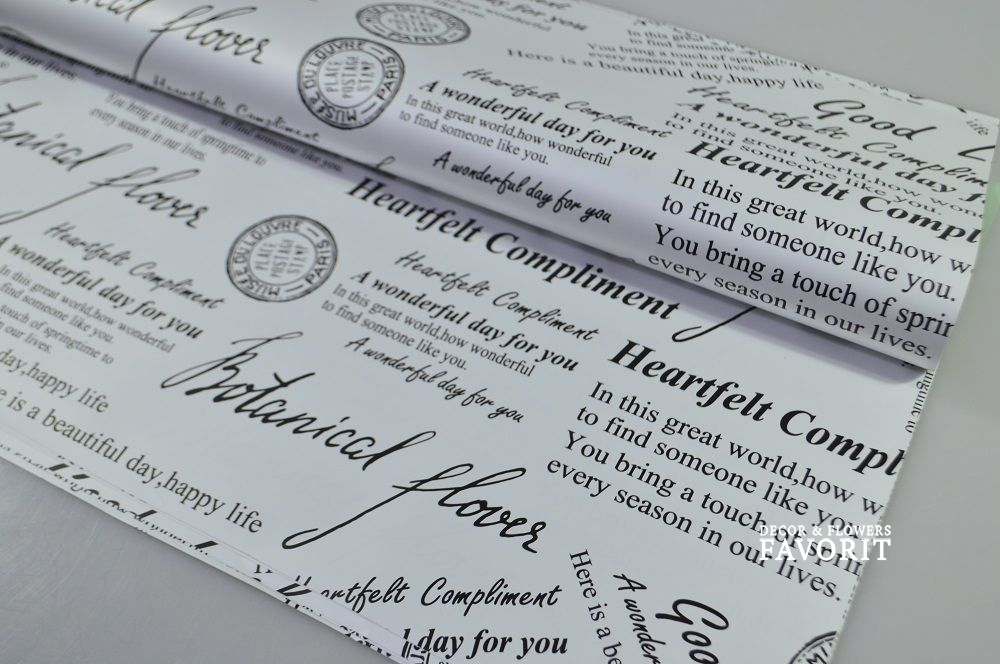 flover
MUSÉE DU LOUVRE
PLACE
POSTAGE
STENT
PARIS
PARIS
day for you
wonderful
Here is a beautiful day,happy life
You bring a touch of springtime
to find someone
In this
Heartfelt Compliment
A wonderful day for you
In this great world,how wonderful
to find someone like you.
A wonderful day for you
Good
Heartfelt Complim
A wonderful day f
Heartfelt Compl
In this great world,how w
to find someone like you.
You bring a touch of sprin
every season in our lives.
in our lives.
Heartfelt Compliment
You bring a touch of springtime to
every season in our lives.
to find someone like you.
tanical flover
MUSÉE DU LOUVRE
PLACE
POSTAGE
STENT
PARIS
Heartfelt Compliment
Heartfelt Compliment
A wonderful day for you
In this great world,how wonderful
to find someone like you.
A wonderful day for you
Heartfelt Compliment
A wonderful day for you
In this great world,how wonderful
to find someone like you.
touch of springtime to
our lives.
day,happy life
Here is a beautiful day,happy life
Botanical flover
Heartfelt Compl
In this great world,how w
to find someone like you
You bring a touch of sprin
every season in our lives.
DECOR & FLOWERS
FAVORIT
artfelt Compliment
day for you
Here is a be
A wonder
Goo